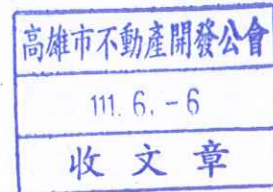 高雄市不動產開發公會
111. 6. -6
收文章